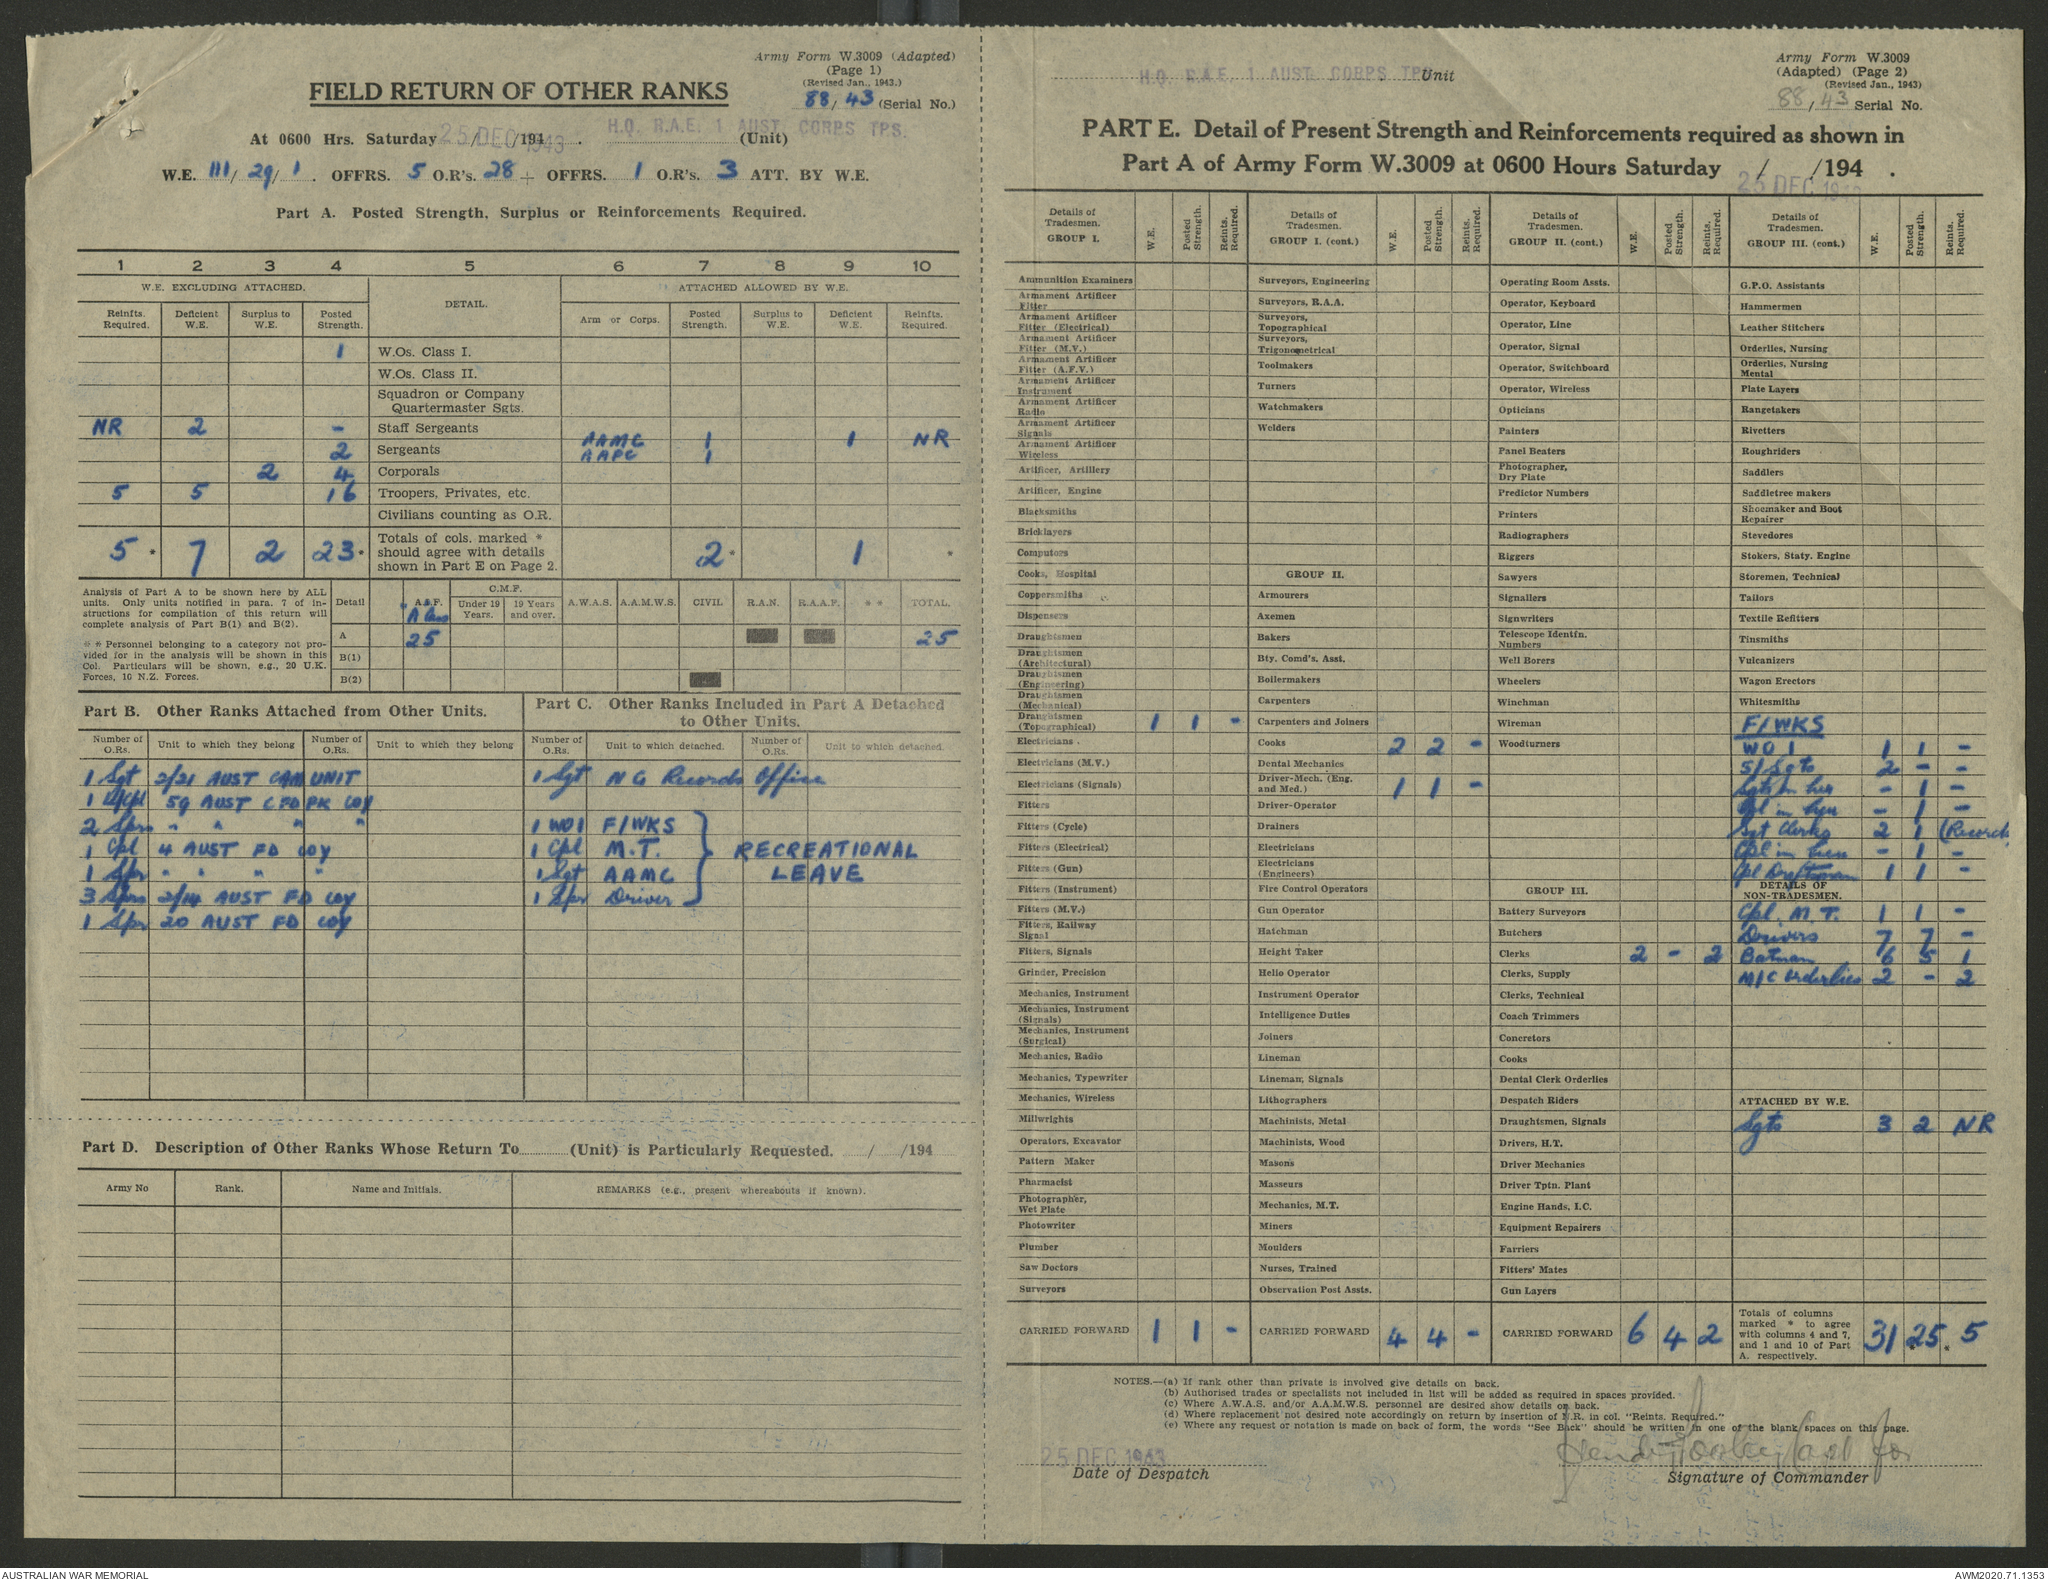 Army Form W.3009 (Adapted)
(Page 1)
(Revised Jan., 1943.)
88/43 (Serial No.)
FIELD RETURN OF OTHER RANKS
At 0600 Hrs. Saturday 25 DEC 1943 / /194 . H.Q. R.A.E. 1 AUST. CORPS TPS. (Unit)
W.E. 111/ 29/ 1 . OFFRS. 5 O.R's. 28 + OFFRS. 1 O.R's. 3 ATT. BY W.E.
Part A. Posted Strength, Surplus or Reinforcements Required.
1 2 3 4 5 6 7 8 9 10
W.E. EXCLUDING ATTACHED. DETAIL. ATTACHED ALLOWED BY W.E.
Reinfts. Required. Deficient W.E. Surplus to W.E. Posted Strength. Arm or Corps. Posted Strength. Surplus to W.E. Deficient W.E. Reinfts. Required.
1 W.Os. Class I.
W.Os. Class II.
Squadron or Company
Quartermaster Sgts.
NR 2 - Staff Sergeants
2 Sergeants AAMC 1 1 NR
AAPC 1
2 4 Corporals
5 5 16 Troopers, Privates, etc.
Civilians counting as O.R.
5 * 7 2 23 * Totals of cols. marked * should agree with details shown in Part E on Page 2. 2 * 1 *
Analysis of Part A to be shown here by ALL
units. Only units notified in para. 7 of in-
structions for compilation of this return will
complete analysis of Part B(1) and B(2).
* * Personnel belonging to a category not pro-
vided for in the analysis will be shown in this
Col. Particulars will be shown, e.g., 20 U.K.
Forces, 10 N.Z. Forces.
Detail A.I.F. C.M.F. Under 19 Years. 19 Years and over. A.W.A.S. A.A.M.W.S. CIVIL R.A.N. R.A.A.F. * * TOTAL.
A Class
A 25 25
B(1)
B(2)
Part B. Other Ranks Attached from Other Units.
Number of O.Rs. Unit to which they belong Number of O.Rs. Unit to which they belong
1 Sgt 2/21 AUST CAM UNIT
1 L/Cpl 59 AUST CFD PK COY
2 Sprs " " " "
1 Cpl 4 AUST FD COY
1 Spr " " " "
3 Sprs 2/14 AUST FD COY
1 Spr 20 AUST FD COY
Part C. Other Ranks Included in Part A Detached
to Other Units.
Number of O.Rs. Unit to which detached. Number of O.Rs. Unit to which detached.
1 Sgt NG Records Office
1 WO1 F/WKS
1 Cpl M.T. RECREATIONAL
1 Sgt AAMC LEAVE
1 Spr Driver
Part D. Description of Other Ranks Whose Return To (Unit) is Particularly Requested. / /194
Army No Rank. Name and Initials. REMARKS (e.g., present whereabouts if known).
H.Q. R.A.E. 1 AUST. CORPS TPS. Unit
Army Form W.3009
(Adapted) (Page 2)
(Revised Jan., 1943)
88/43 Serial No.
PART E. Detail of Present Strength and Reinforcements required as shown in
Part A of Army Form W.3009 at 0600 Hours Saturday / /194 .
25 DEC 1943
Details of Tradesmen. GROUP I. W.E. Posted Strength. Reints. Required.
Ammunition Examiners
Armament Artificer Fitter
Armament Artificer Fitter (Electrical)
Armament Artificer Fitter (M.V.)
Armament Artificer Fitter (A.F.V.)
Armament Artificer Instrument
Armament Artificer Radio
Armament Artificer Signals
Armament Artificer Wireless
Artificer, Artillery
Artificer, Engine
Blacksmiths
Bricklayers
Computors
Cooks, Hospital
Coppersmiths
Dispensers
Draughtsmen
Draughtsmen (Architectural)
Draughtsmen (Engineering)
Draughtsmen (Mechanical)
Draughtsmen (Topographical) 1 1 -
Electricians
Electricians (M.V.)
Electricians (Signals)
Fitters
Fitters (Cycle)
Fitters (Electrical)
Fitters (Gun)
Fitters (Instrument)
Fitters (M.V.)
Fitters, Railway Signal
Fitters, Signals
Grinder, Precision
Mechanics, Instrument
Mechanics, Instrument (Signals)
Mechanics, Instrument (Surgical)
Mechanics, Radio
Mechanics, Typewriter
Mechanics, Wireless
Millwrights
Operators, Excavator
Pattern Maker
Pharmacist
Photographer, Wet Plate
Photowriter
Plumber
Saw Doctors
Surveyors
CARRIED FORWARD 1 1 -
Details of Tradesmen. GROUP I. (cont.) W.E. Posted Strength. Reints. Required.
Surveyors, Engineering
Surveyors, R.A.A.
Surveyors, Topographical
Surveyors, Trigonometrical
Toolmakers
Turners
Watchmakers
Welders
GROUP II.
Armourers
Axemen
Bakers
Bty. Comd's. Asst.
Boilermakers
Carpenters
Carpenters and Joiners
Cooks 2 2 -
Dental Mechanics
Driver-Mech. (Eng. and Med.) 1 1 -
Driver-Operator
Drainers
Electricians
Electricians (Engineers)
Fire Control Operators
Gun Operator
Hatchman
Height Taker
Hello Operator
Instrument Operator
Intelligence Duties
Joiners
Lineman
Lineman, Signals
Lithographers
Machinists, Metal
Machinists, Wood
Masons
Masseurs
Mechanics, M.T.
Miners
Moulders
Nurses, Trained
Observation Post Assts.
CARRIED FORWARD 4 4 -
Details of Tradesmen. GROUP II. (cont.) W.E. Posted Strength. Reints. Required.
Operating Room Assts.
Operator, Keyboard
Operator, Line
Operator, Signal
Operator, Switchboard
Operator, Wireless
Opticians
Painters
Panel Beaters
Photographer, Dry Plate
Predictor Numbers
Printers
Radiographers
Riggers
Sawyers
Signallers
Signwriters
Telescope Identfn. Numbers
Well Borers
Wheelers
Winchman
Wireman
Woodturners
GROUP III.
Battery Surveyors
Butchers
Clerks 2 - 2
Clerks, Supply
Clerks, Technical
Coach Trimmers
Concretors
Cooks
Dental Clerk Orderlies
Despatch Riders
Draughtsmen, Signals
Drivers, H.T.
Driver Mechanics
Driver Tptn. Plant
Engine Hands, I.C.
Equipment Repairers
Farriers
Fitters' Mates
Gun Layers
CARRIED FORWARD 6 4 2
Details of Tradesmen. GROUP III. (cont.) W.E. Posted Strength. Reints. Required.
G.P.O. Assistants
Hammermen
Leather Stitchers
Orderlies, Nursing
Orderlies, Nursing Mental
Plate Layers
Rangetakers
Rivetters
Roughriders
Saddlers
Saddletree makers
Shoemaker and Boot Repairer
Stevedores
Stokers, Staty. Engine
Storemen, Technical
Tailors
Textile Refitters
Tinsmiths
Vulcanizers
Wagon Erectors
Whitesmiths
F/WKS
WO 1 1 1 -
S/Sgts 2 - -
Sgts in lieu - 1 -
Cpl in lieu - 1 -
Sgt Clerks 2 1 (Records
Cpl in lieu - 1 -
Cpl Draftsman 1 1 -
DETAILS OF NON-TRADESMEN.
Cpl. M.T. 1 1 -
Drivers 7 7 -
Batman 6 5 1
M/C Orderlies 2 - 2
ATTACHED BY W.E.
Sgts 3 2 NR
Totals of columns marked * to agree with columns 4 and 7, and 1 and 10 of Part A. respectively. 31 25 * 5
NOTES.—(a) If rank other than private is involved give details on back.
(b) Authorised trades or specialists not included in list will be added as required in spaces provided.
(c) Where A.W.A.S. and/or A.A.M.W.S. personnel are desired show details on back.
(d) Where replacement not desired note accordingly on return by insertion of N.R. in col. "Reints. Required."
(e) Where any request or notation is made on back of form, the words "See Back" should be written in one of the blank spaces on this page.
25 DEC 1943
Date of Despatch
Capt for
Signature of Commander
AUSTRALIAN WAR MEMORIAL
AWM2020.71.1353